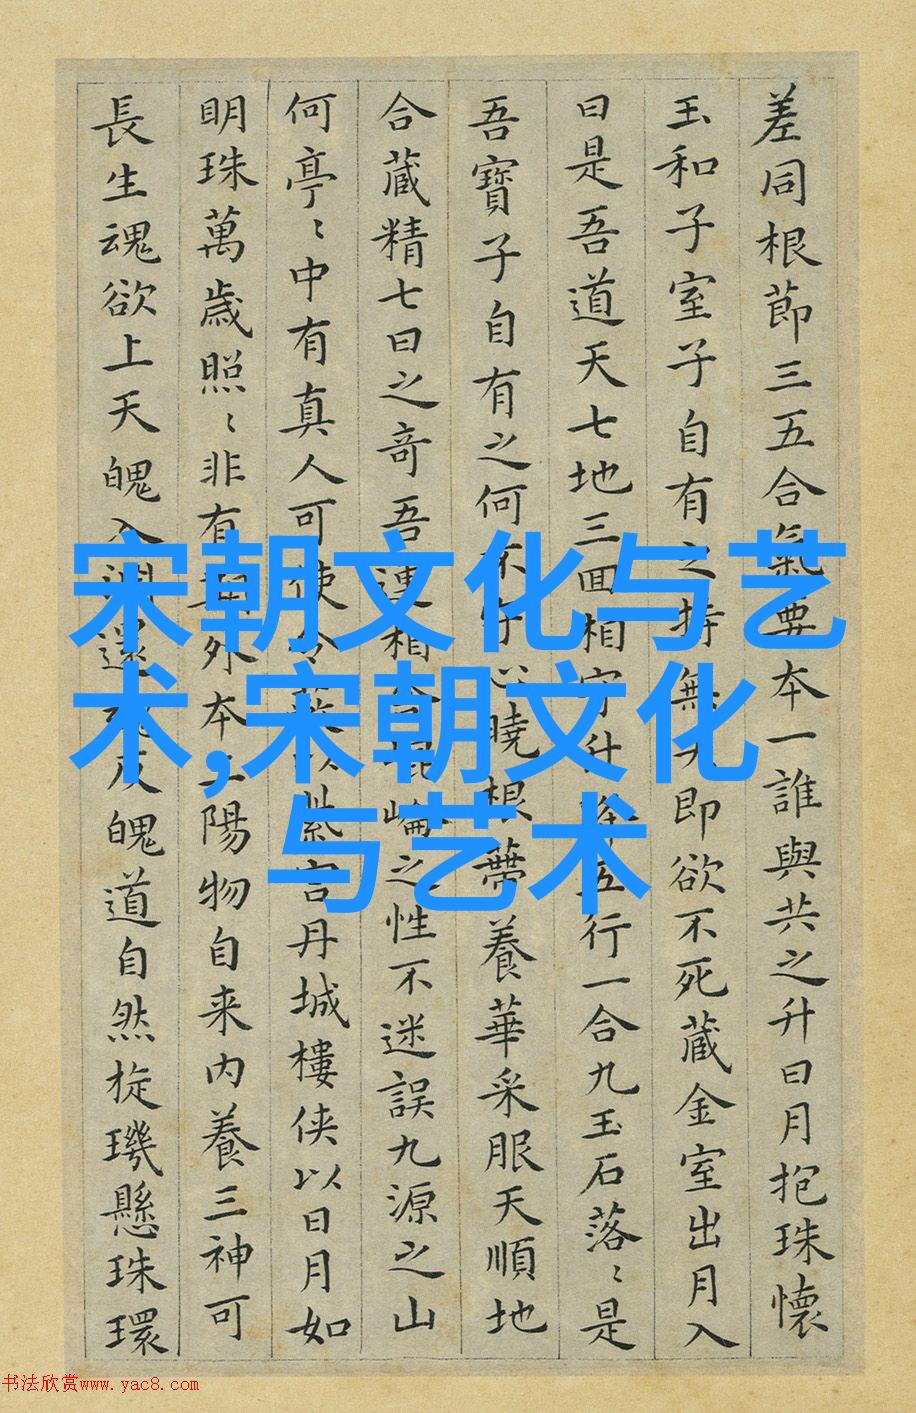 差同根節三五合氣要本一誰與共之升日月抱珠懷
玉和子室子自有之持無即欲不死藏金室出月入
日是吾道天七地三回相守升降五行一合九玉石落〻是
吾寶子自有之何不守心曉根蒂養華采服天順地
合藏精七日之奇吾連相崙之性不迷誤九源之山
何亭〻中有真人可使令以紫宮丹城樓侠以日月如
明珠萬歲照〻非有期外本三陽物自来内養三神可
長生魂欲上天魄入淵還魂反魄道自然旋璣懸珠環
宋朝文化与艺
术,宋朝文化
与艺术
书法欣赏www.yac8.com